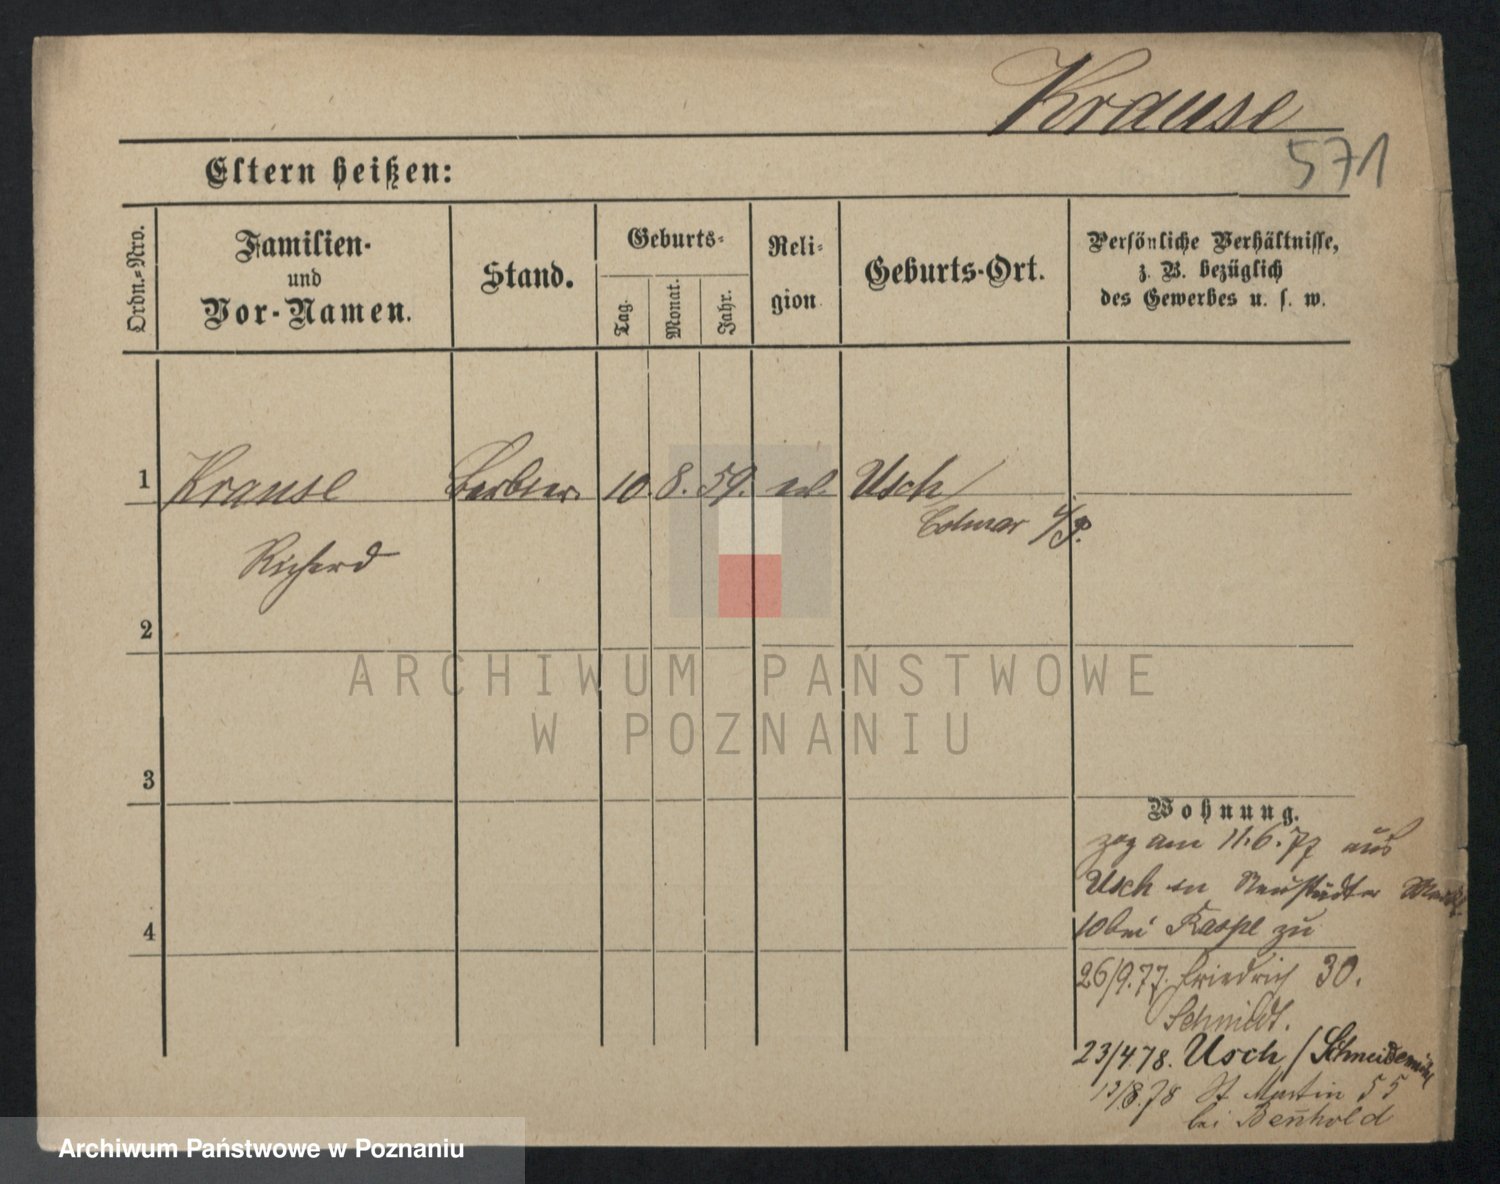 Krause
571
Eltern heißen:
Ordn.-Nro.
Familien-
und
Vor-Namen.
Stand.
Geburts-
Tag.
Monat.
Jahr.
Reli-
gion
Geburts-Ort.
Persönliche Verhältnisse,
z. B. bezüglich
des Gewerbes u. s. w.
1 Krause Barbier 10. 8. 59. ev. Usch /
Colmar i/P.
Richard
2
ARCHIWUM PAŃSTWOWE
W POZNANIU
3
Wohnung.
zog am 11.6.77 aus
Usch in Neustädter Markt
4
10 bei Kaspe zu
26/9.77. Friedrich 30.
Schmidt.
23/4.78. Usch / Schneidemühl
13/8.78 St Martin 55
bei Benhold
Archiwum Państwowe w Poznaniu